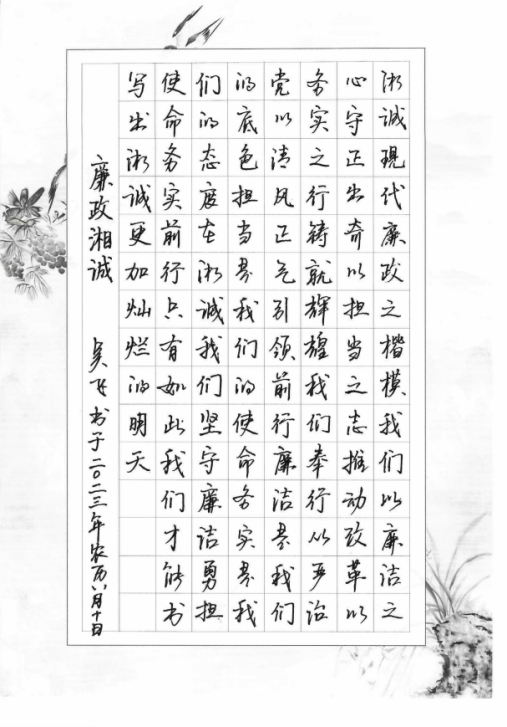 湘诚现代廉政之楷模我们以廉洁之
心守正出奇以担当之志推动改革以
务实之行铸就辉煌我们奉行从严治
党以清风正气引领前行廉洁是我们
的底色担当是我们的使命务实是我
们的态度在湘诚我们坚守廉洁勇担
使命务实前行只有如此我们才能书
写出湘诚更加灿烂的明天
廉政湘诚 吴飞书于二〇二三年农历八月十日